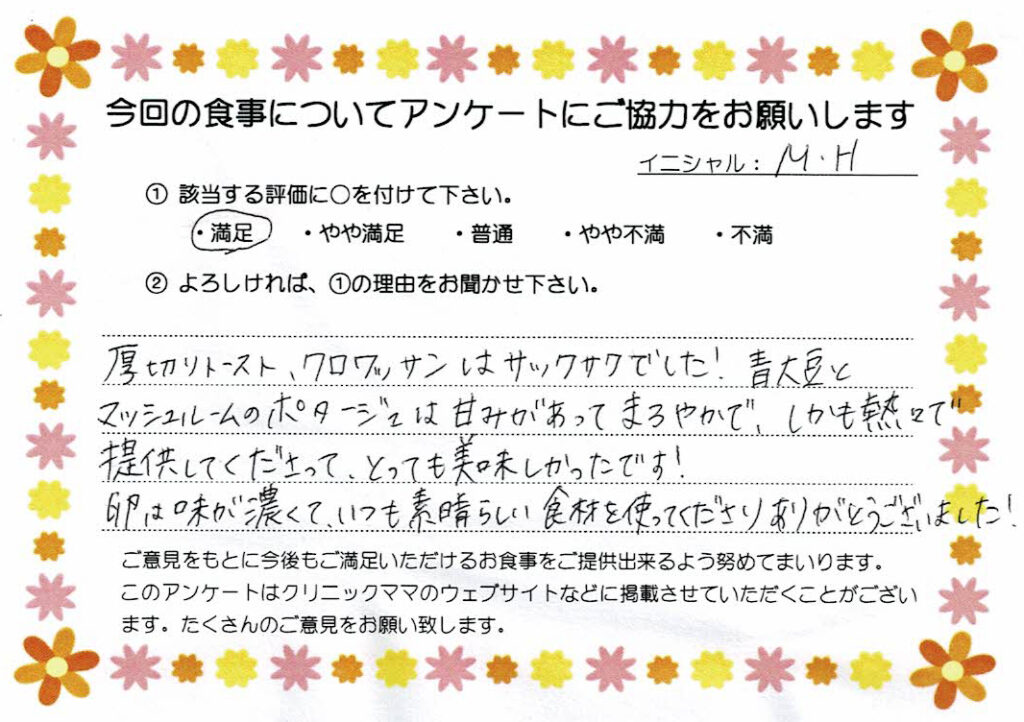 今回の食事についてアンケートにご協力をお願いします
イニシャル： M・H
① 該当する評価に○を付けて下さい。
・満足 ・やや満足 ・普通 ・やや不満 ・不満
② よろしければ、①の理由をお聞かせ下さい。
厚切りトースト、クロワッサンはサックサクでした！ 青大豆と
マッシュルームのポタージュは甘みがあってまろやかで、しかも熱々で
提供してくださって、とっても美味しかったです！
卵は味が濃くて、いつも素晴らしい食材を使ってくださりありがとうございました！
ご意見をもとに今後もご満足いただけるお食事をご提供出来るよう努めてまいります。
このアンケートはクリニックママのウェブサイトなどに掲載させていただくことがござい
ます。たくさんのご意見をお願い致します。